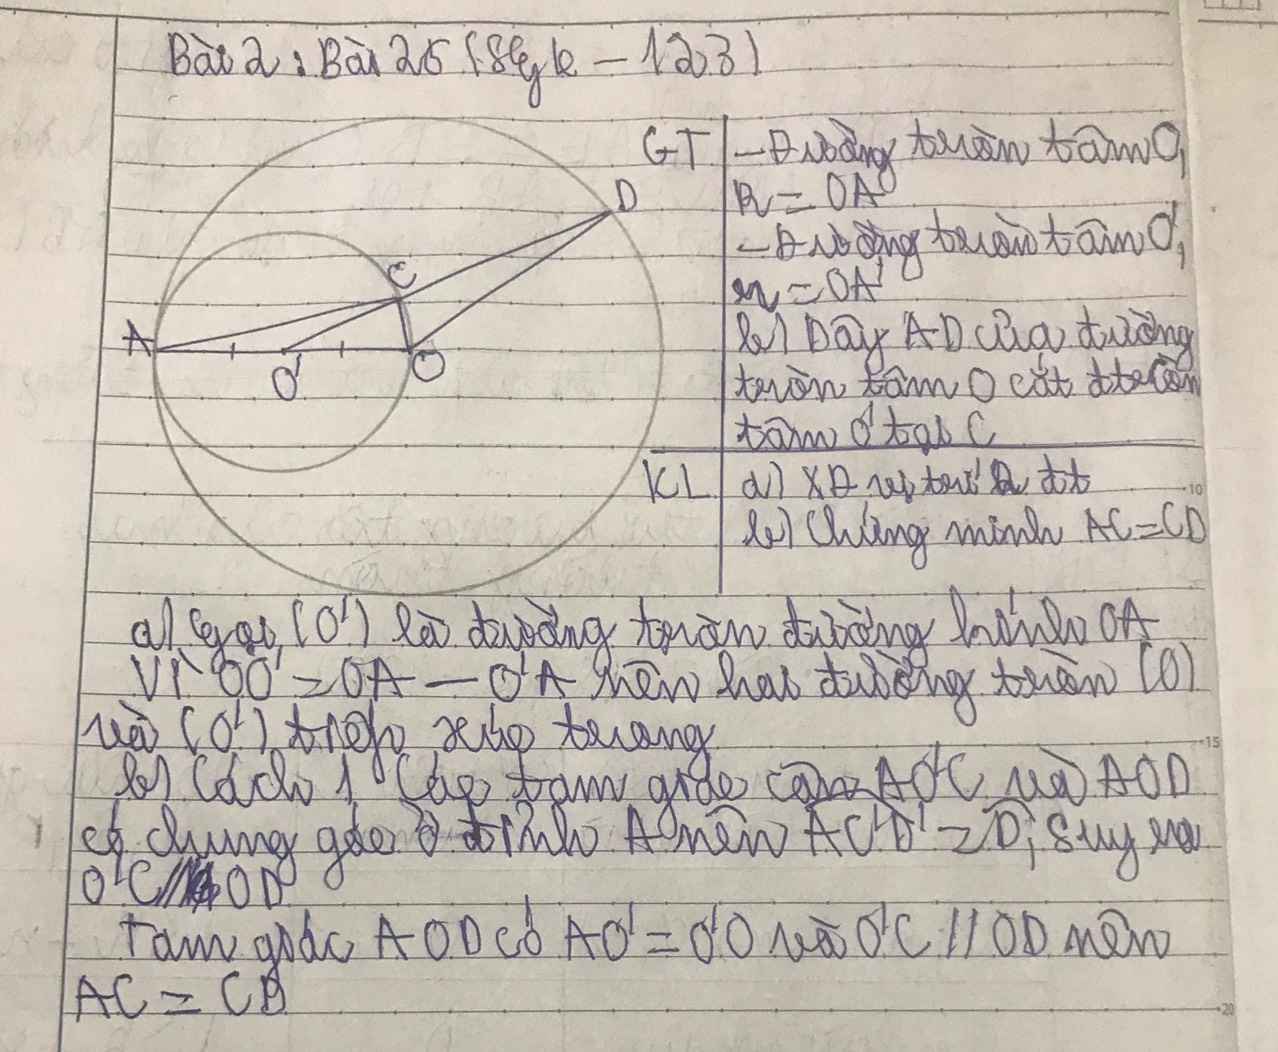 Bài 2: Bài 25 (Sgk - 123)
GT
- Đường tròn tâm O,
R = OA
- Đường tròn tâm O',
r = OA'
b) Dây AD của đường
tròn tâm O cắt đtròn
tâm O' tại C
KL
a) XĐ vị trí 2 đt
b) Chứng minh AC = CD
D
C
A
O'
O
a) Gọi (O') là đường tròn đường kính OA
Vì OO' = OA - O'A nên hai đường tròn (O)
và (O') tiếp xúc trong
b) Cách 1 Các tam giác cân AO'C và AOD
có chung góc ở đỉnh A nên ACD' = D, suy ra
O'C // OD
Tam giác AOD có AO' = O'O và O'C // OD nên
AC = CD
10
15
20